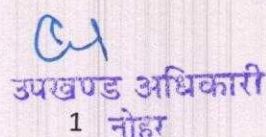 उपखण्ड अधिकारी
1 नोहर